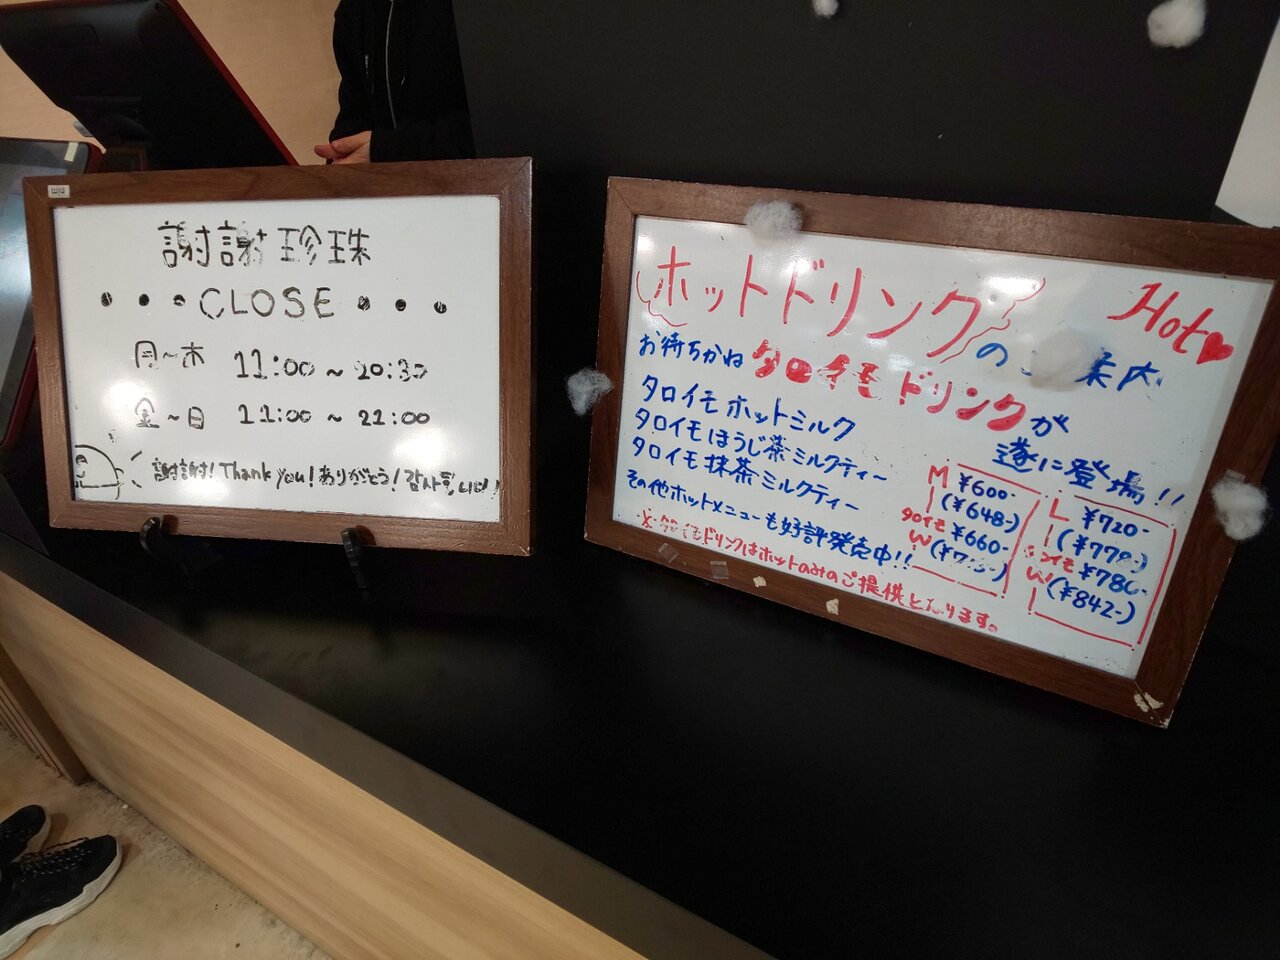 謝謝珍珠
CLOSE
月～木 11:00～20:30
金～日 11:00～21:00
謝謝! Thank you! ありがとう!
ホットドリンク
の 案内
Hot
お待ちかね タロイモドリンクが
遂に登場!!
タロイモホットミルク
タロイモほうじ茶ミルクティー
タロイモ抹茶ミルクティー
その他ホットメニューも好評発売中!!
ドリンクはホットのみのご提供となります。
M ¥600-
(¥648-)
タロイモ ¥660-
W
L ¥720-
(¥778-)
(¥842-)